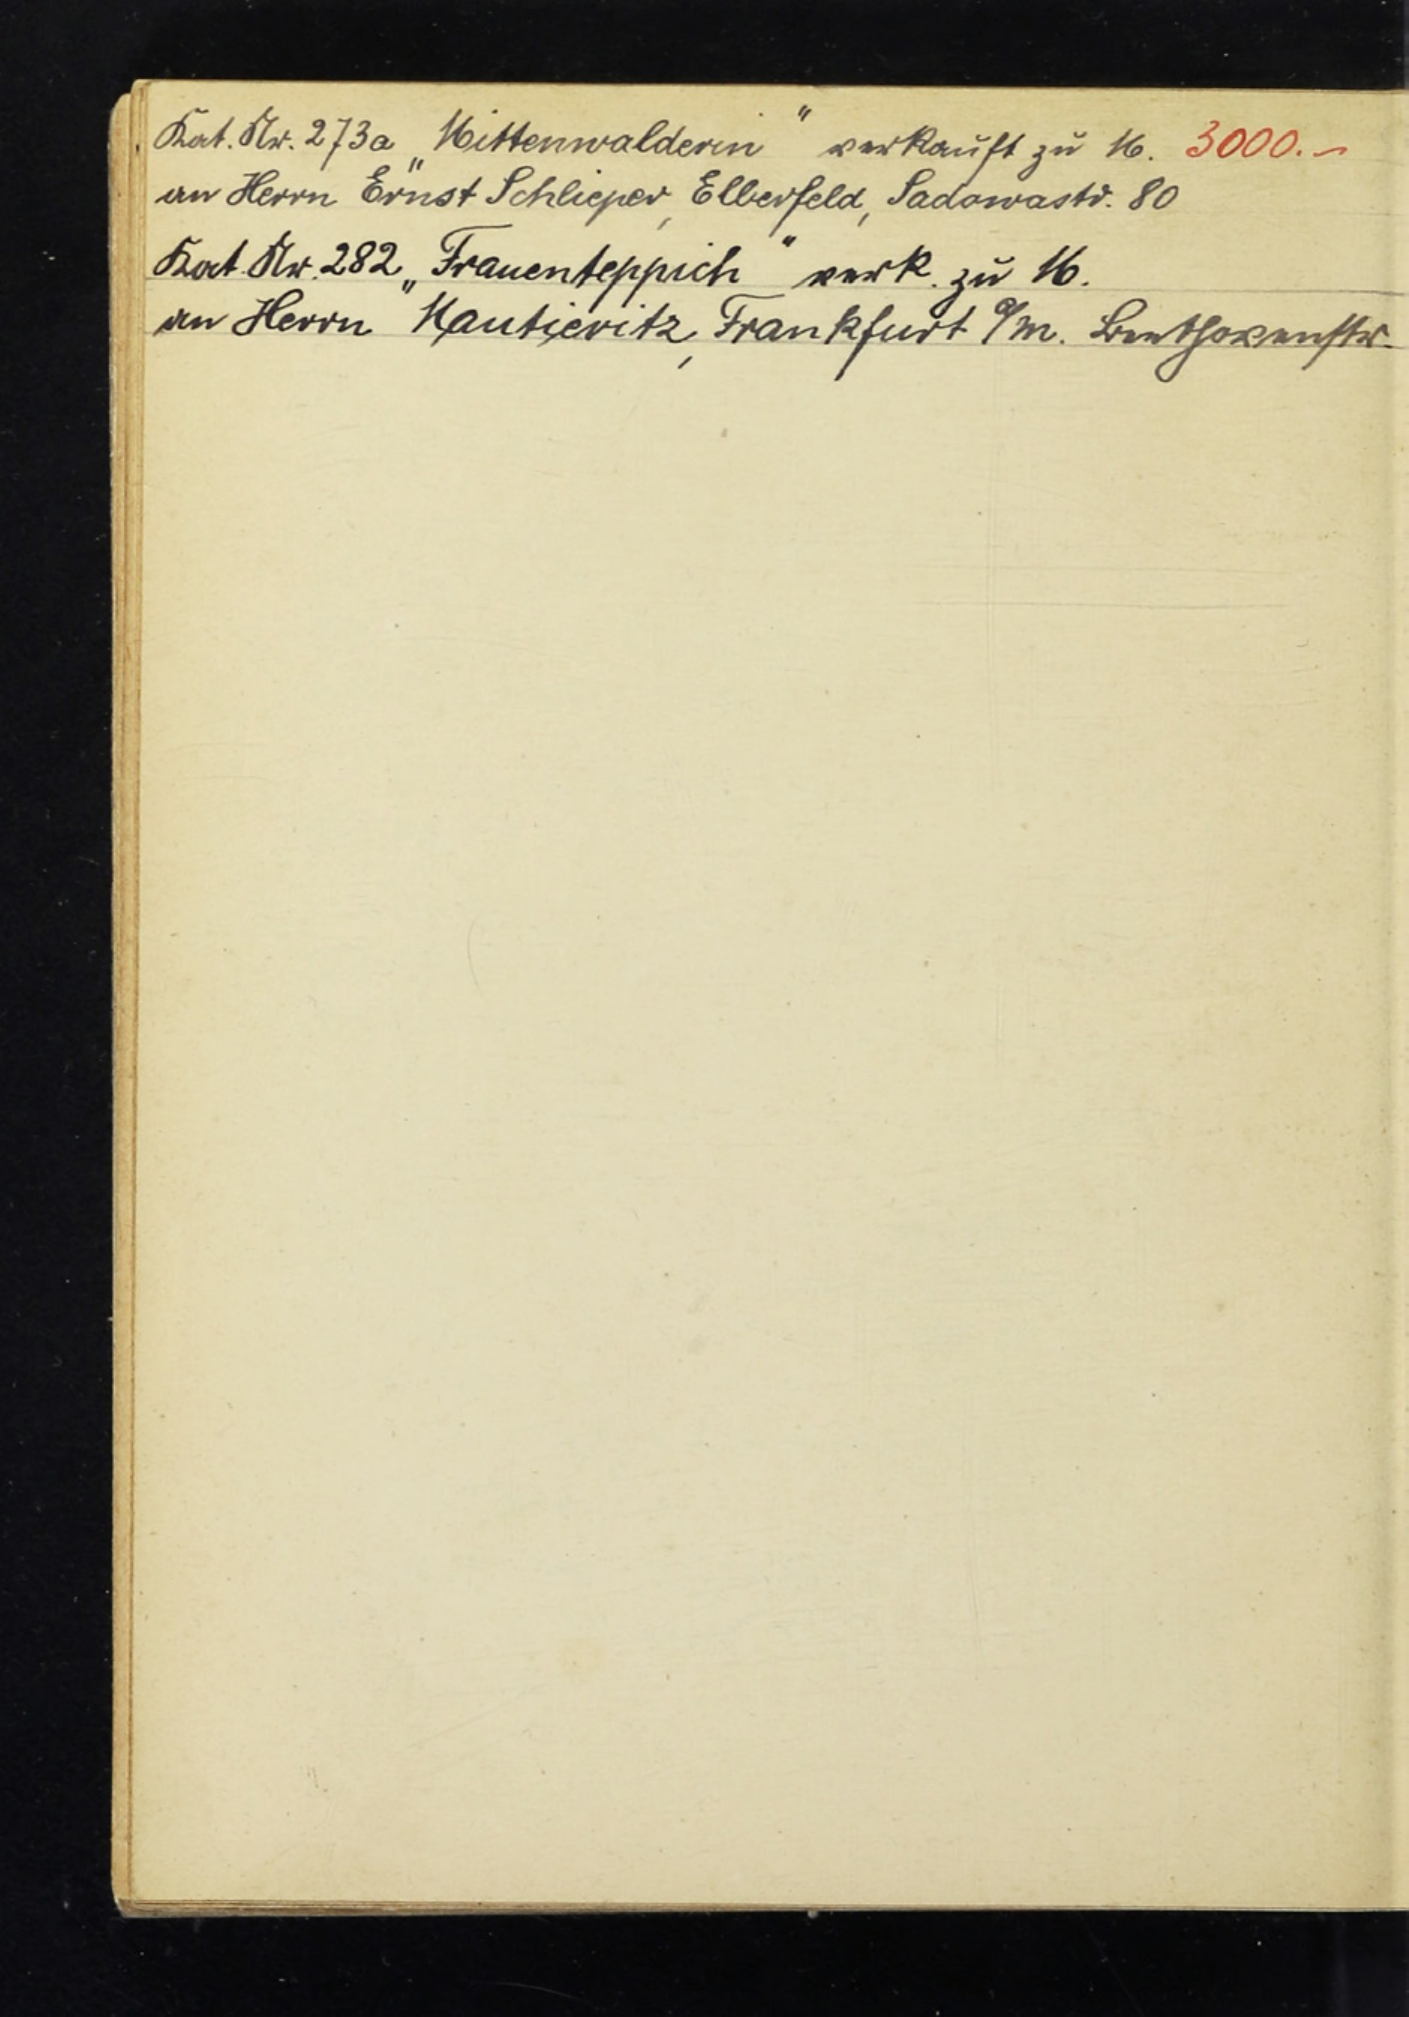 Kat. Nr. 273a „Mittenwalderin" verkauft zu M. 3000.-
an Herrn Ernst Schlieper, Elberfeld, Sadowastr. 80
Kat. Nr. 282 „Frauenteppich" verk. zu M.
an Herrn Frankfurt a/M. Beethovenstr.